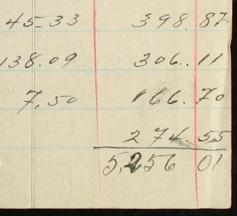 45.33 398.87
138.09 306.11
7.50 166.70
274.55
5,256 01